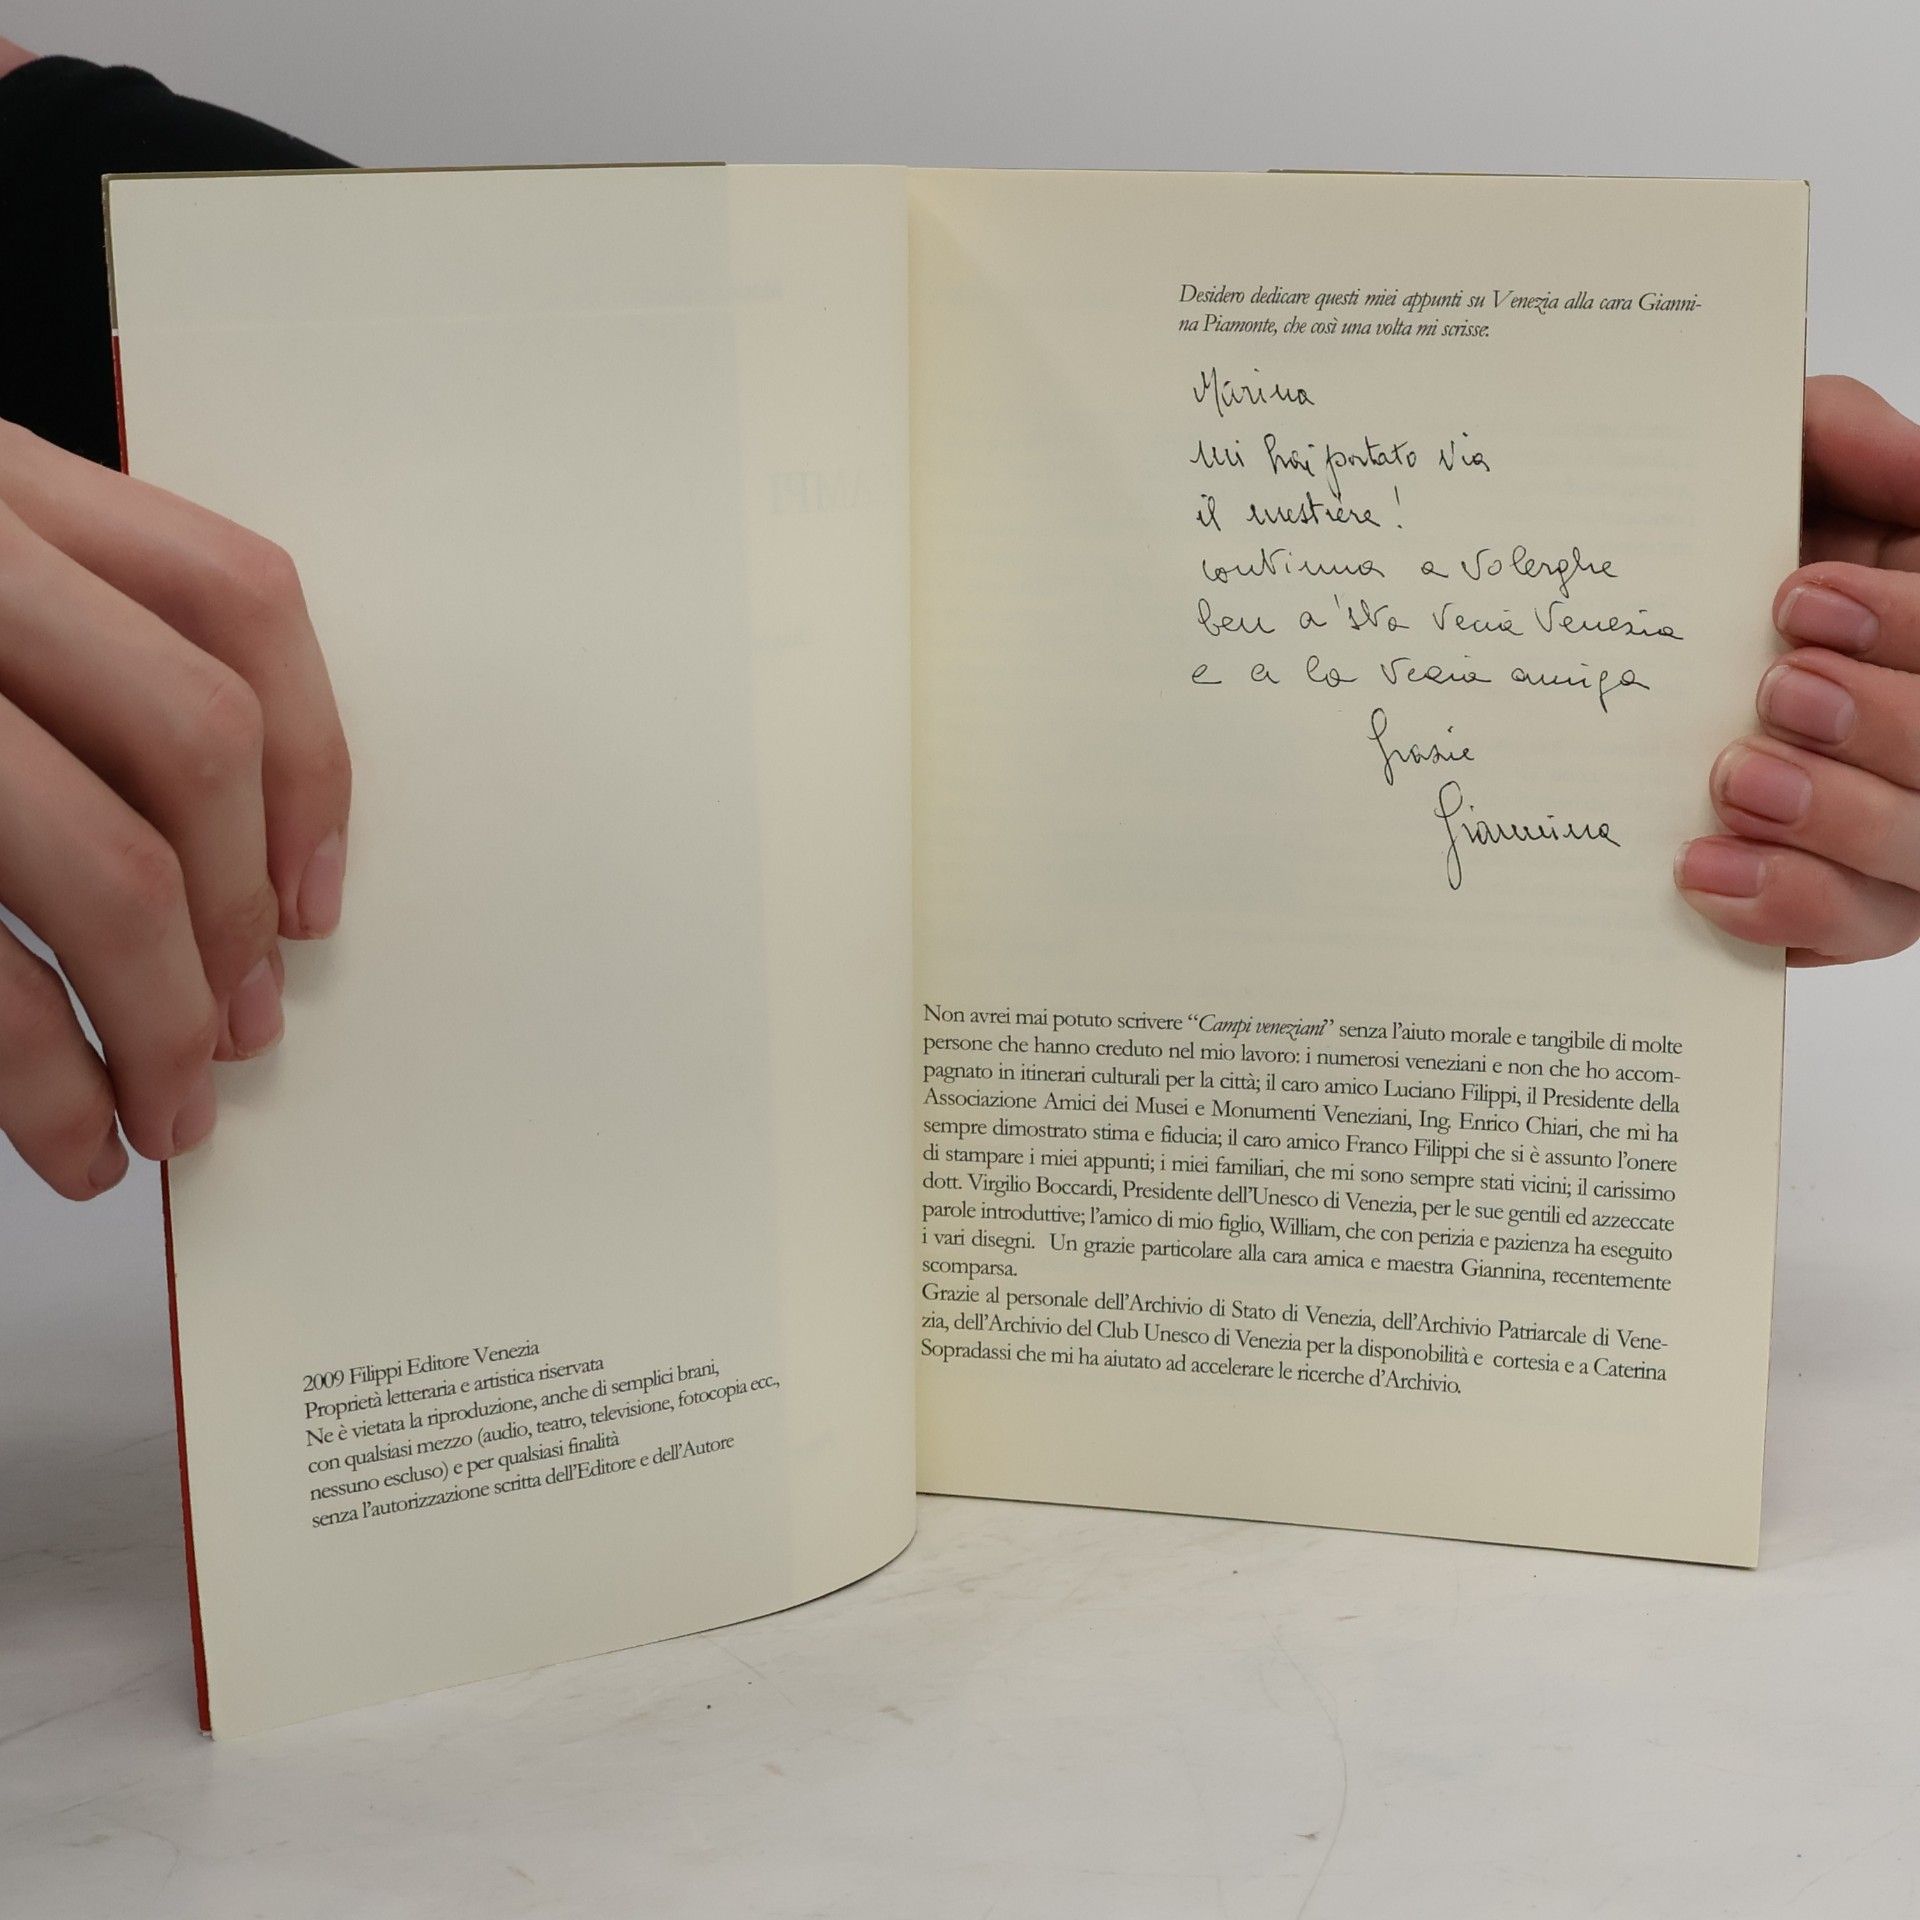 2009 Filippi Editore Venezia
Proprietà letteraria e artistica riservata
Ne è vietata la riproduzione, anche di semplici brani,
con qualsiasi mezzo (audio, teatro, televisione, fotocopia ecc.,
nessuno escluso) e per qualsiasi finalità
senza l'autorizzazione scritta dell'Editore e dell'Autore
Desidero dedicare questi miei appunti su Venezia alla cara Gianni-
na Piamonte, che così una volta mi scrisse:
Marina
mi hai portato via
il mestiere!
continua a volerghe
ben a 'sta vecia Venezia
e a la vecia amiga
Grazie
Giannina
Non avrei mai potuto scrivere “Campi veneziani” senza l'aiuto morale e tangibile di molte
persone che hanno creduto nel mio lavoro: i numerosi veneziani e non che ho accom-
pagnato in itinerari culturali per la città; il caro amico Luciano Filippi, il Presidente della
Associazione Amici dei Musei e Monumenti Veneziani, Ing. Enrico Chiari, che mi ha
sempre dimostrato stima e fiducia; il caro amico Franco Filippi che si è assunto l'onere
di stampare i miei appunti; i miei familiari, che mi sono sempre stati vicini; il carissimo
dott. Virgilio Boccardi, Presidente dell'Unesco di Venezia, per le sue gentili ed azzeccate
parole introduttive; l'amico di mio figlio, William, che con perizia e pazienza ha eseguito
i vari disegni. Un grazie particolare alla cara amica e maestra Giannina, recentemente
scomparsa.
Grazie al personale dell'Archivio di Stato di Venezia, dell'Archivio Patriarcale di Vene-
zia, dell'Archivio del Club Unesco di Venezia per la disponobilità e cortesia e a Caterina
Sopradassi che mi ha aiutato ad accelerare le ricerche d'Archivio.